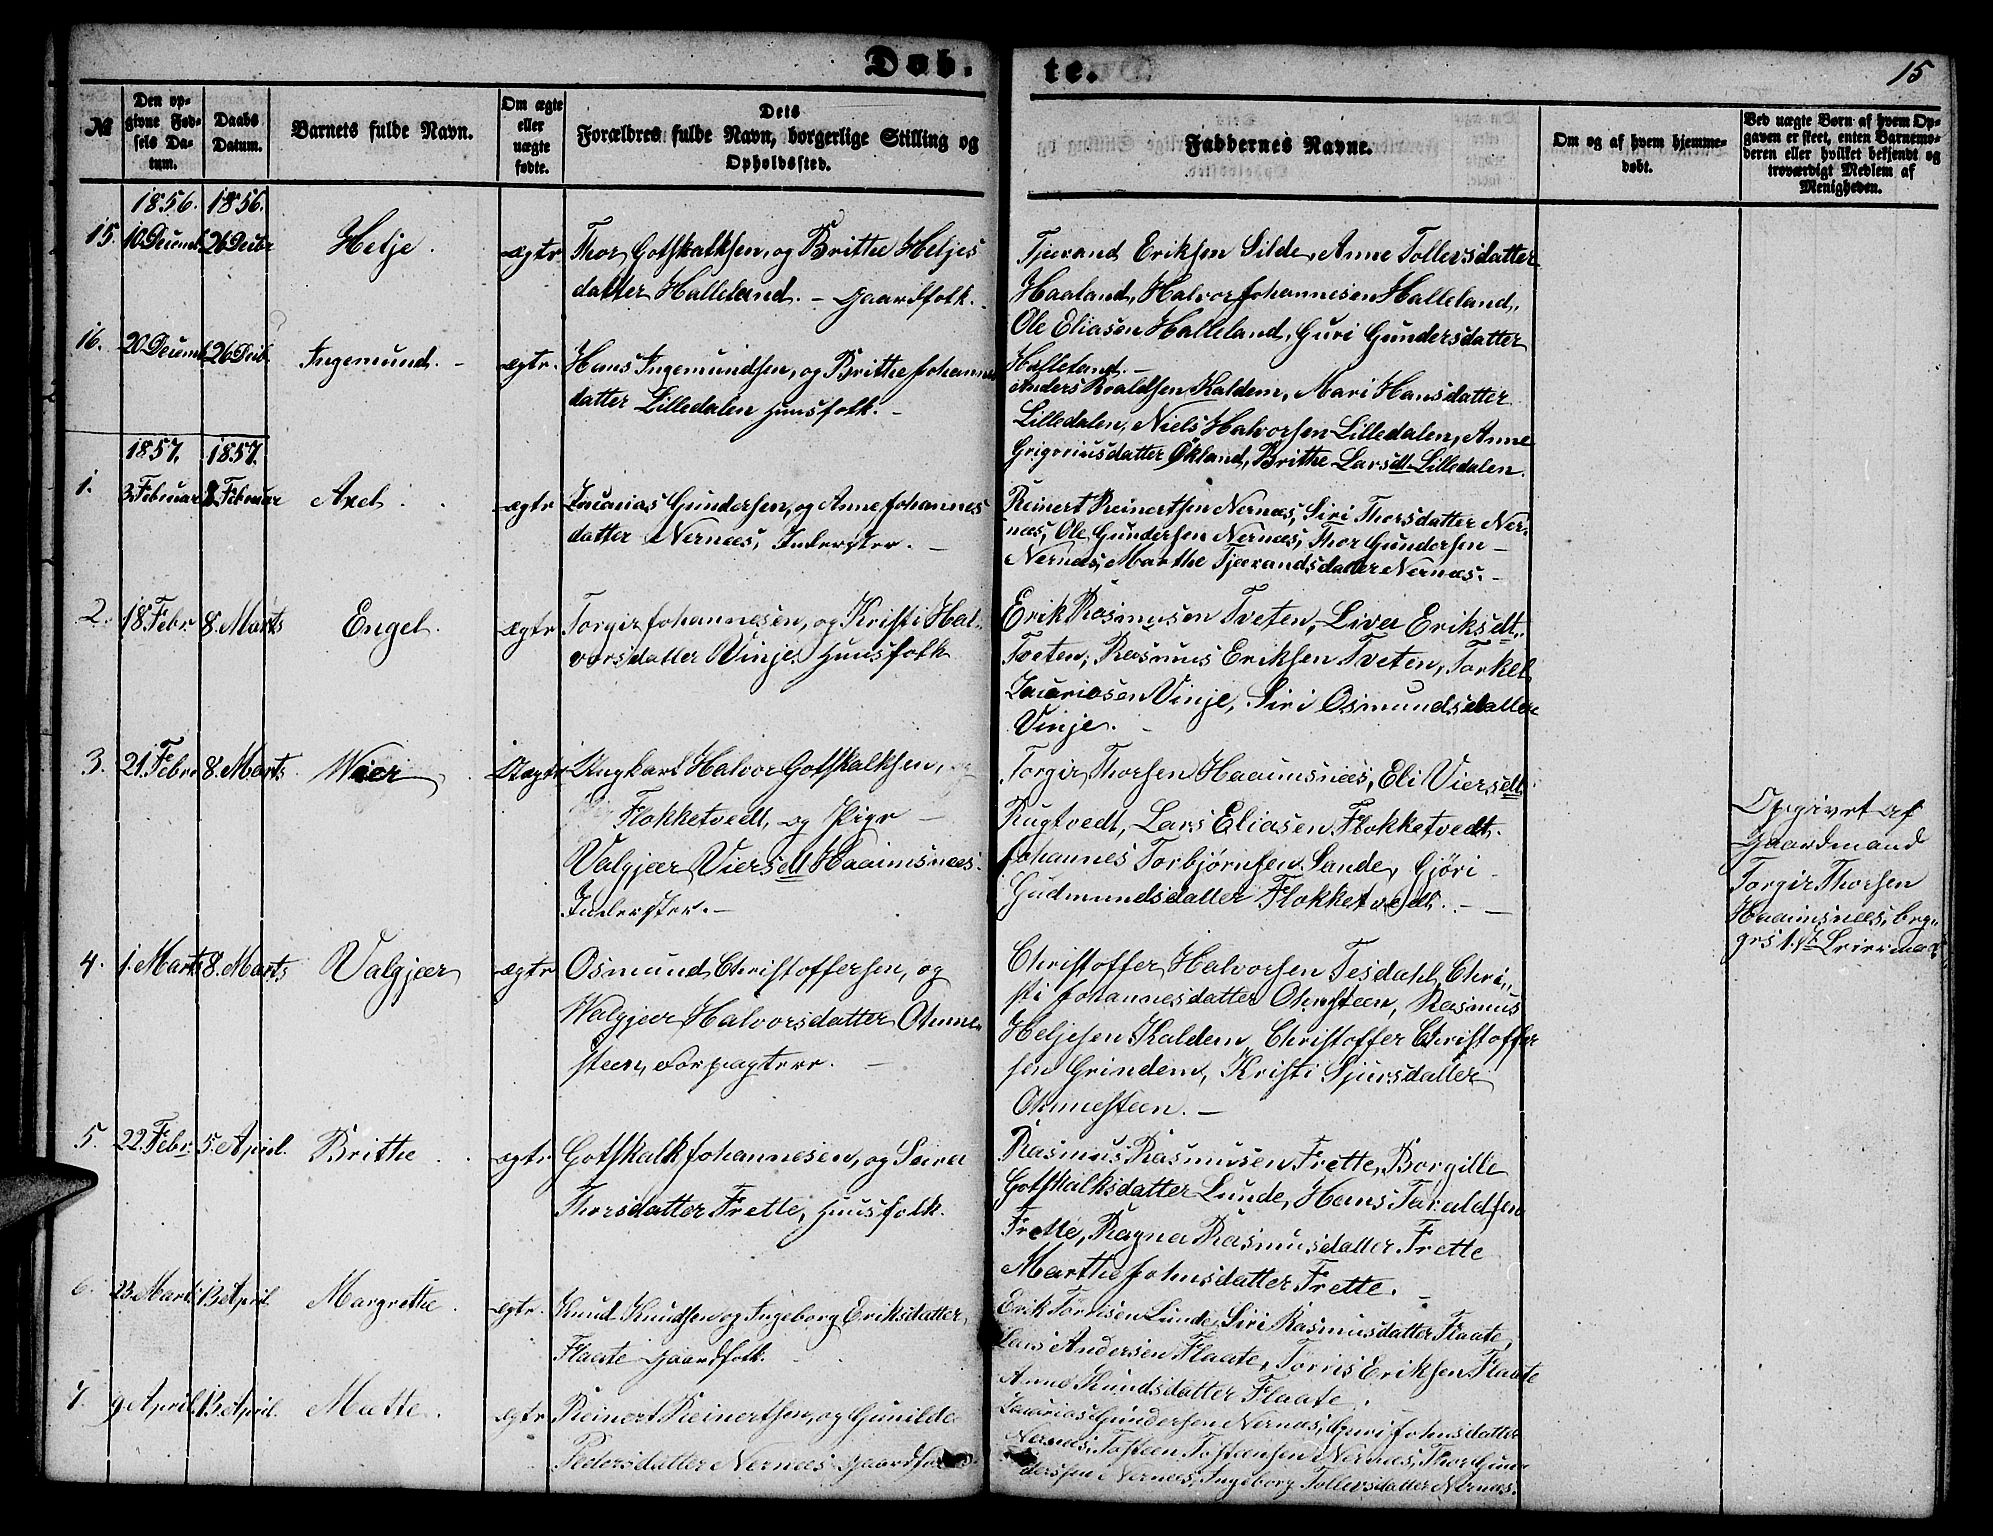 Døb.
te.
15
№
Den opgivne Fødsels Datum.
Daabs Datum.
Barnets fulde Navn.
Om ægte eller uægte fødte.
Dets Forældres fulde Navn, borgerlige Stilling og Opholdssted.
Faddernes Navne.
Om og af hvem hjemmedøbt.
Ved uægte Børn af hvem Opgaven er skeet, enten Barnemoderen eller hvilket bekjendt og troværdigt Medlem af Menigheden.
1856. 1856.
15. 10 Decemb. 26 Decbr Helje. ægte
Thor Gotskalksen, og Brithe Heljes
datter Halleland. - Gaardfolk.
Tjerand Eriksen Silde, Anne Tollevsdatter
Haaland, Halvor Johannesen Halleland,
Ole Eliasen Halleland, Guri Gundersdatter
Halleland. -
16. 20 Decemb. 26 Decb. Ingemund. - ægte.
Hans Ingemundsen, og Brithe Johannes
datter Lilledalen Huusfolk. -
Anders Roaldsen Kaldem, Mari Hansdatter
Lilledalen, Niels Halvorsen Lilledalen, Anne
Grigoriusdatter Økland, Brithe Larsdt. Lilledalen.
1857. 1857.
1. 3 Februar 8 Februar Axel. ægte
Zacarias Gundersen, og Anne Johannes
datter Nernæs, Inderster. -
Reinert Reinertsen Nernæs, Siri Thorsdatter Ner-
næs, Ole Gundersen Nernæs, Thor Gundersen -
Nernæs, Marthe Tjerandsdatter Nernæs. -
2. 18 Febr. 8. Marts Engel. ægte
Torgir Johannesen, og Kristi Hal-
vorsdatter Vinje. Huusfolk
Erik Rasmusen Tveten, Liva Eriksdt.
Tveten, Rasmus Eriksen Tveten, Torkel
Zacariasen Vinje, Siri Osmundsdatter
Vinje. -
3. 21 Febr 8. Marts Wier Uægte
Ungkarl Halvor Gotskalksen,
Flokketvedt, og Pige -
Valgjær Viersdt Haaimsnæs.
Inderster. -
Torgir Thorsen Haaimsnæs, Eli Viersdt.
Rugtvedt, Lars Eliasen Flokketvedt.
Johannes Torbjørnsen Sande, Gjøri -
Gudmundsdatter Flokketvedt. -
Opgivet af
Gaardmand
Torgir Thorsen
Haaimsnæs,
4. 1. Marts 8. Marts Valgjær ægte
Osmund Christoffersen, og
Walgjær Halvorsdatter Ohnne-
steen, Forpagtere. -
Christoffer Halvorsen Tesdahl, Chri-
sti Johannesdatter Ohnsteen, Rasmus
Heljesen Kaldem, Christoffer Christoffer
sen Grindem, Kristi Sjursdatter
Ohnnesteen. -
5. 22. Febr. 5. April. Brithe. ægte
Gotskalk Johannesen, og Seira
Thorsdatter Frette, Huusfolk.
Rasmus Rasmusen Frette, Borgille
Gotskalksdatter Lunde, Hans Taraldsen
Frette, Ragna Rasmusdatter Frette
Marthe Johnsdatter Frette. -
6. 23. Marts 13 April. Margrethe. ægte.
Knud Knudsen og Ingeborg Eriksdatter,
Flaate Gaardfolk.
Erik Tørrisen Lunde, Siri Rasmusdatter Flaate,
Lars Andersen Flaate, Tørris Eriksen Flaate
Anne Knudsdatter Flaate.
7. 9 April. 13 April. Matte. ægte
Reinert Reinertsen, og Gunilde
Pedersdatter Nernæs Gaardfolk
Zacarias Gundersen Nernæs, Guri Johnsdatter
Nernæs, Tosteen Tosteensen Nernæs, Thor Gun-
dersen Nernæs, Ingeborg Tollevsdatter Nernæs.